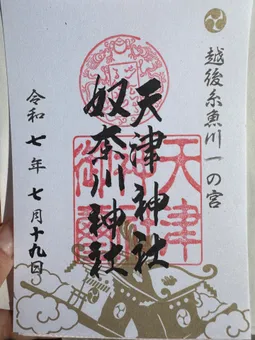 越後糸魚川一の宮
天津神社
奴奈川神社
令和七年七月十九日
天津